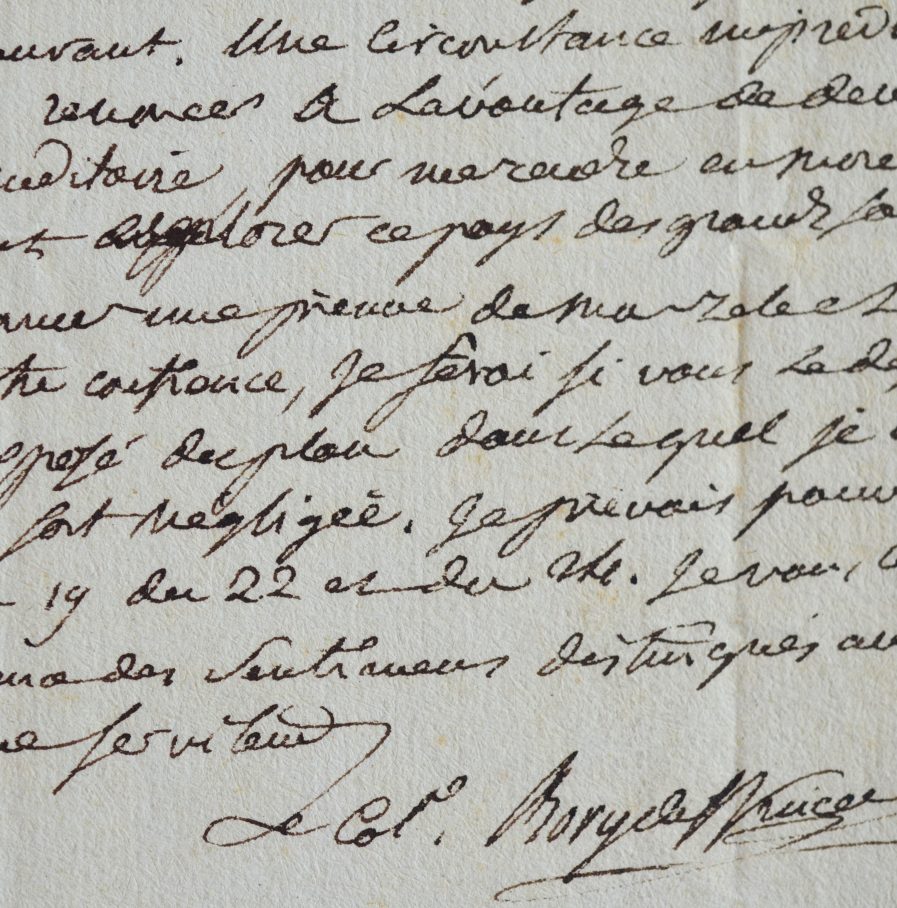 ourant. Une circonstance imprédi
renoncer à Lavantage de deve
uditoire, pour me rendre en more
et explorer ce pays des grands
onner une preuve de mon zele et
tre confiance, je ferai si vous le de
pozé du plan dans lequel je
fort négligée. Je prévois pouv
19 du 22 et du 24. Je vous
ance des sentimens distingués av
serviteur
Le Col. Bory de St Vincent